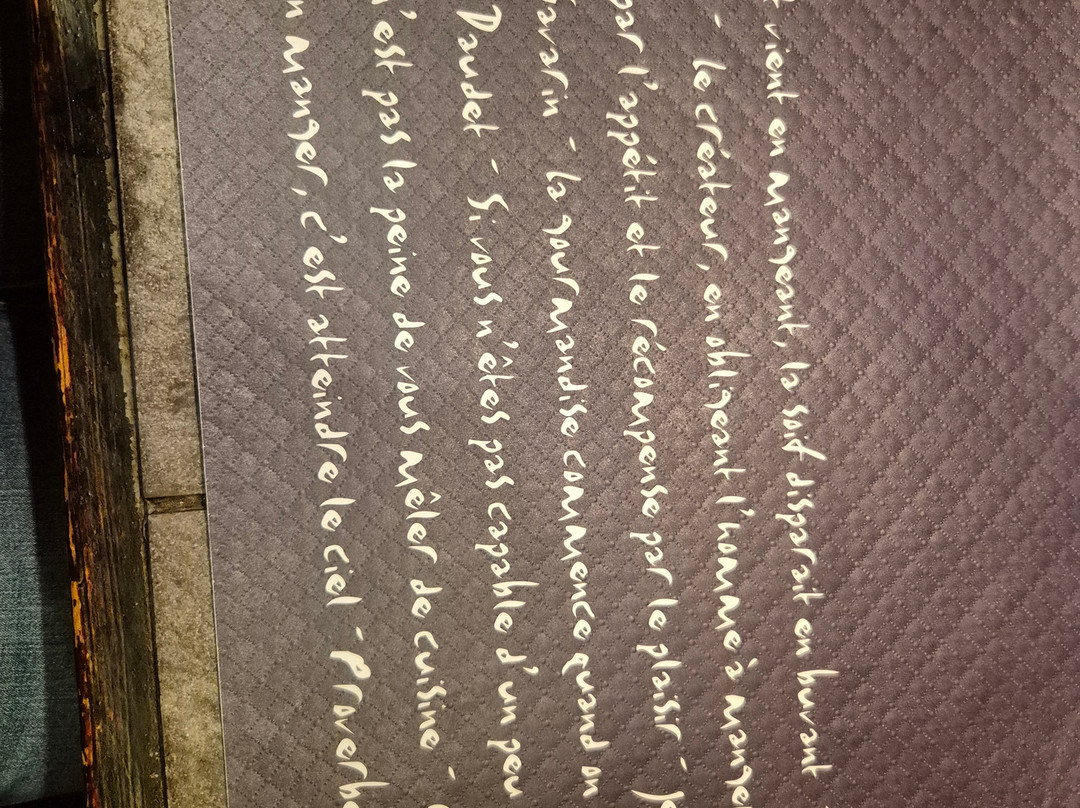 vient en mangeant, la soif disparait en buvant
- le créateur, en obligeant l'homme à
par l'appétit et le récompense par le plaisir -
- la gourmandise commence quand on
Daudet - Si vous n'êtes pas capable d'un peu
n'est pas la peine de vous mêler de cuisine -
manger, c'est atteindre le ciel -